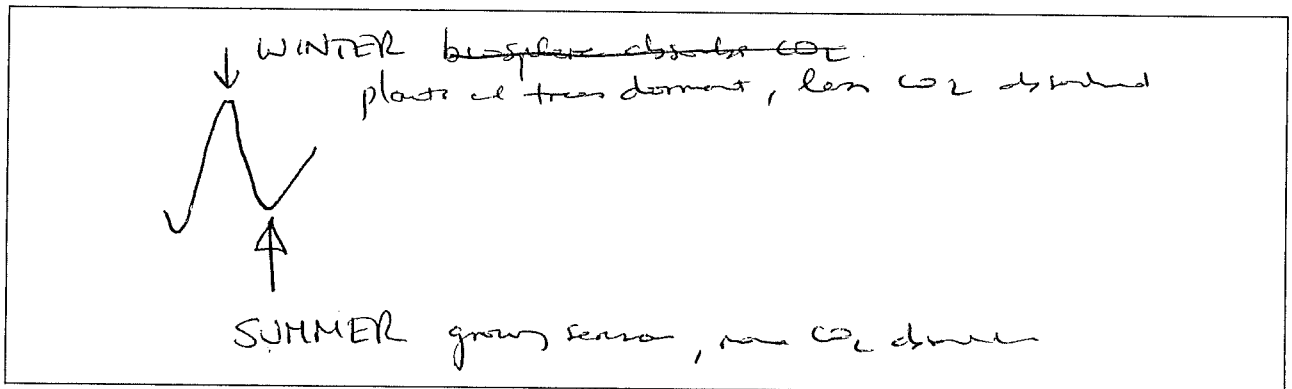 WINTER ~~biosphere absorbs CO2~~
plants and trees dormant, less CO2 absorbed
SUMMER growing season, more CO2 absorbed